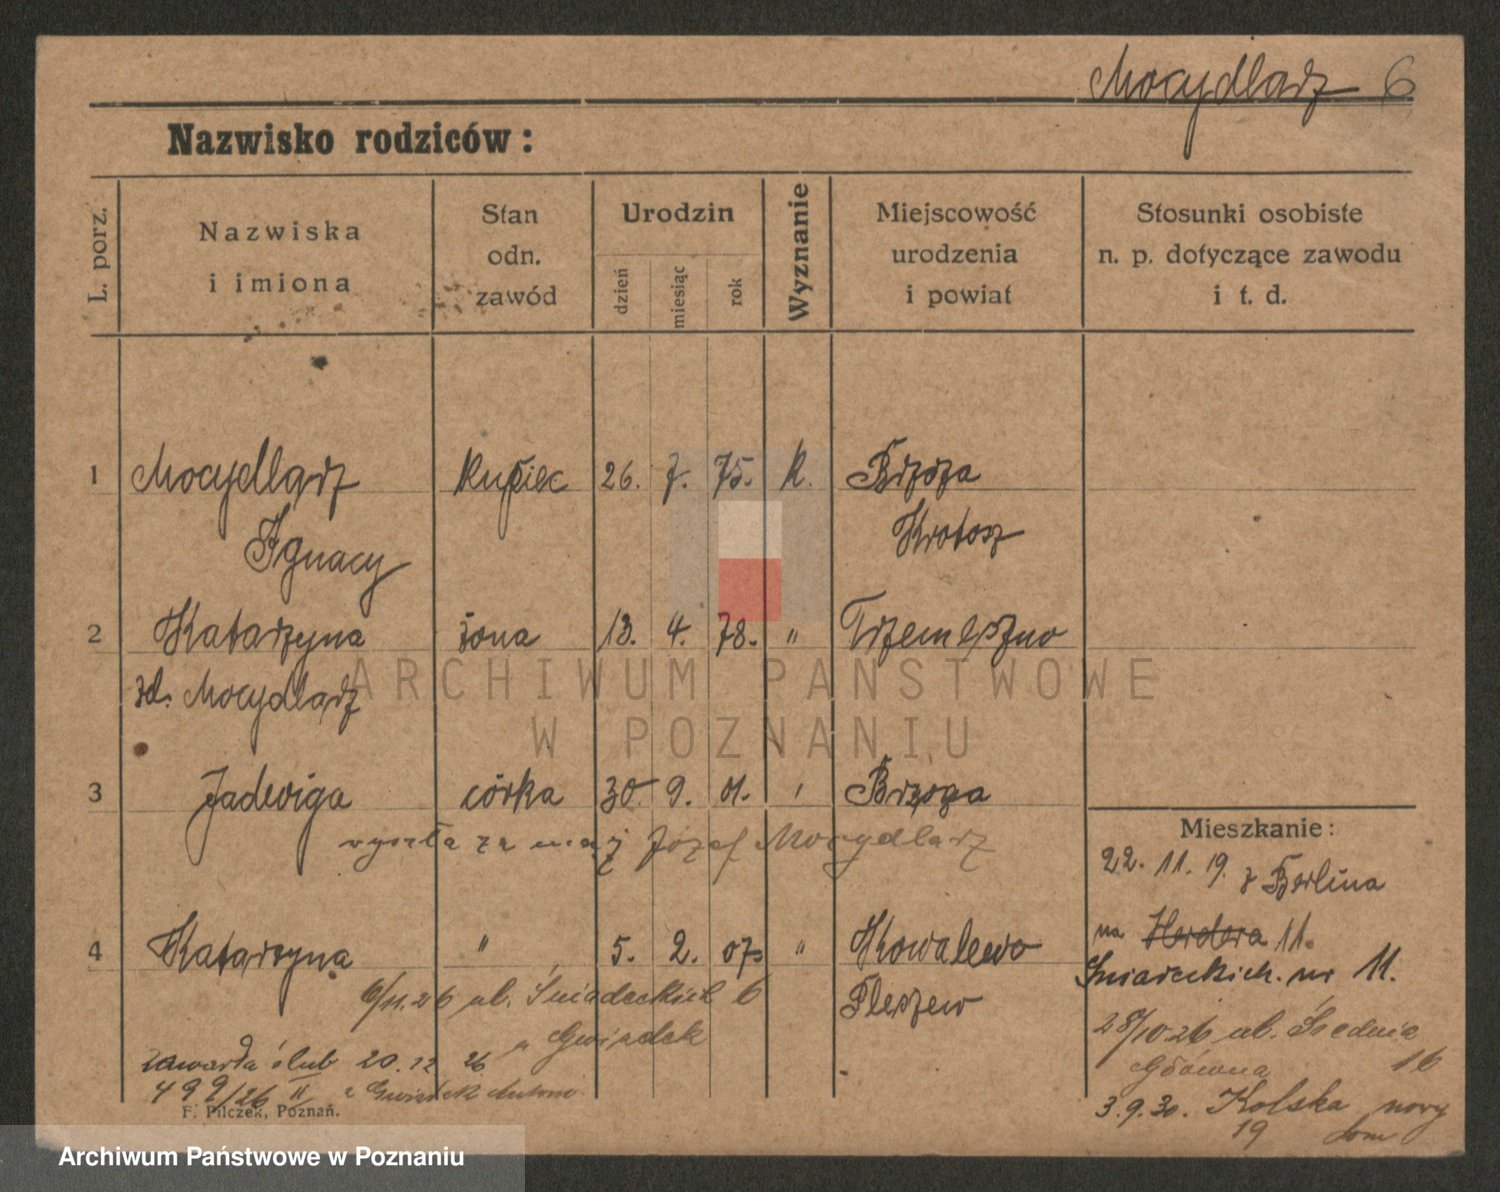 Mocydlarz 6
Nazwisko rodziców:
L. porz.
Nazwiska
i imiona
Stan
odn.
zawód
Urodzin
dzień
miesiąc
rok
Wyznanie
Miejscowość
urodzenia
i powiat
Stosunki osobiste
n. p. dotyczące zawodu
i t. d.
1 Mocydlarz kupiec 26. 7. 75. k. Brzoza
Ignacy Krotosz
2 Katarzyna żona 13. 4. 78. " Trzemeszno
zd. Mocydlarz
ARCHIWUM PAŃSTWOWE
W POZNANIU
3 Jadwiga córka 30. 9. 01. " Brzoza
wyszła za mąż Józef Mocydlarz
4 Katarzyna " 5. 2. 07 " Kowalewo
Pleszew
6/11.26 ul. Śniadeckich 6
" Gwizdek
zawarła ślub 20. 12 26
499/26 II z Gwizdek Antoni
Mieszkanie:
22. 11. 19. z Berlina
na Herdera 11.
Śniadeckich. nr 11.
28/10.26 ul. Średnia
Główna 16
3.9.30. Kolska nowy
19 dom
F. Pilczek, Poznań.
Archiwum Państwowe w Poznaniu